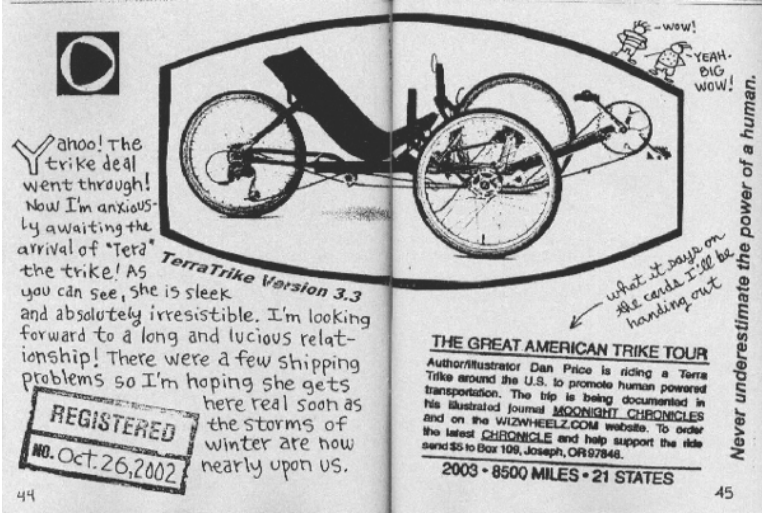 Yahoo! The
trike deal
went through!
Now I'm anxious-
ly awaiting the
arrival of "Tera"
the trike! As
you can see, she is sleek
and absolutely irresistible. I'm looking
forward to a long and lucious relat-
ionship! There were a few shipping
problems so I'm hoping she gets
here real soon as
the storms of
winter are now
nearly upon us.
REGISTERED
NO. Oct. 26, 2002
44
TerraTrike Version 3.3
-WOW!
-YEAH.
BIG
WOW!
what it says on
the cards I'll be
handing out
THE GREAT AMERICAN TRIKE TOUR
Author/Illustrator Dan Price is riding a Terra
Trike around the U.S. to promote human powered
transportation. The trip is being documented in
his illustrated journal MOONIGHT CHRONICLES
and on the WIZWHEELZ.COM website. To order
the latest CHRONICLE and help support the ride
send $5 to Box 109, Joseph, OR 97846.
2003 • 8500 MILES • 21 STATES
Never underestimate the power of a human.
45